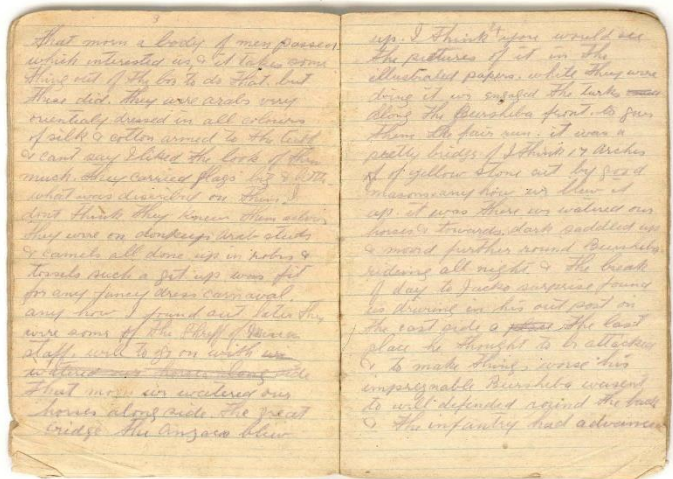 3
That morn a body of men passed
which interested us & it takes some
thing out of the box to do that. but
these did. They were arabs very
orientaly dressed in all colours
of silk & cotton armed to the teeth
& cant say I liked the look of them
much. they carried flags but
what was discribed on them I
dont think they knew them selves
they were on donkeys arab studs
& camels all done up in robes &
tossels such a get up was fit
for any fancy dress carnaval.
any how I found out later they
were some of the
staff. well to go on with we
watered our horses along side
That morn we watered our
horses along side the great
bridge the Anzacs blew
up. I think you would see
the pictures of it in the
illustrated papers. while they were
doing it we engaged the turks
along the Beersheba front. to give
them a fair run. it was a
pretty bridge of I think 17 arches
of yellow stone cut by good
masonary how we blew it
up it was there we watered our
horses & towards dark saddled up
& moved further round Beersheba
rideing all night & the break
of day to Jackos surprise found
us driveing in his out post on
the east side a the last
place he thought to be attacked
& to make things worse his
impregnable Beersheba wasent
to well defended round the back
& the infantry had advanced